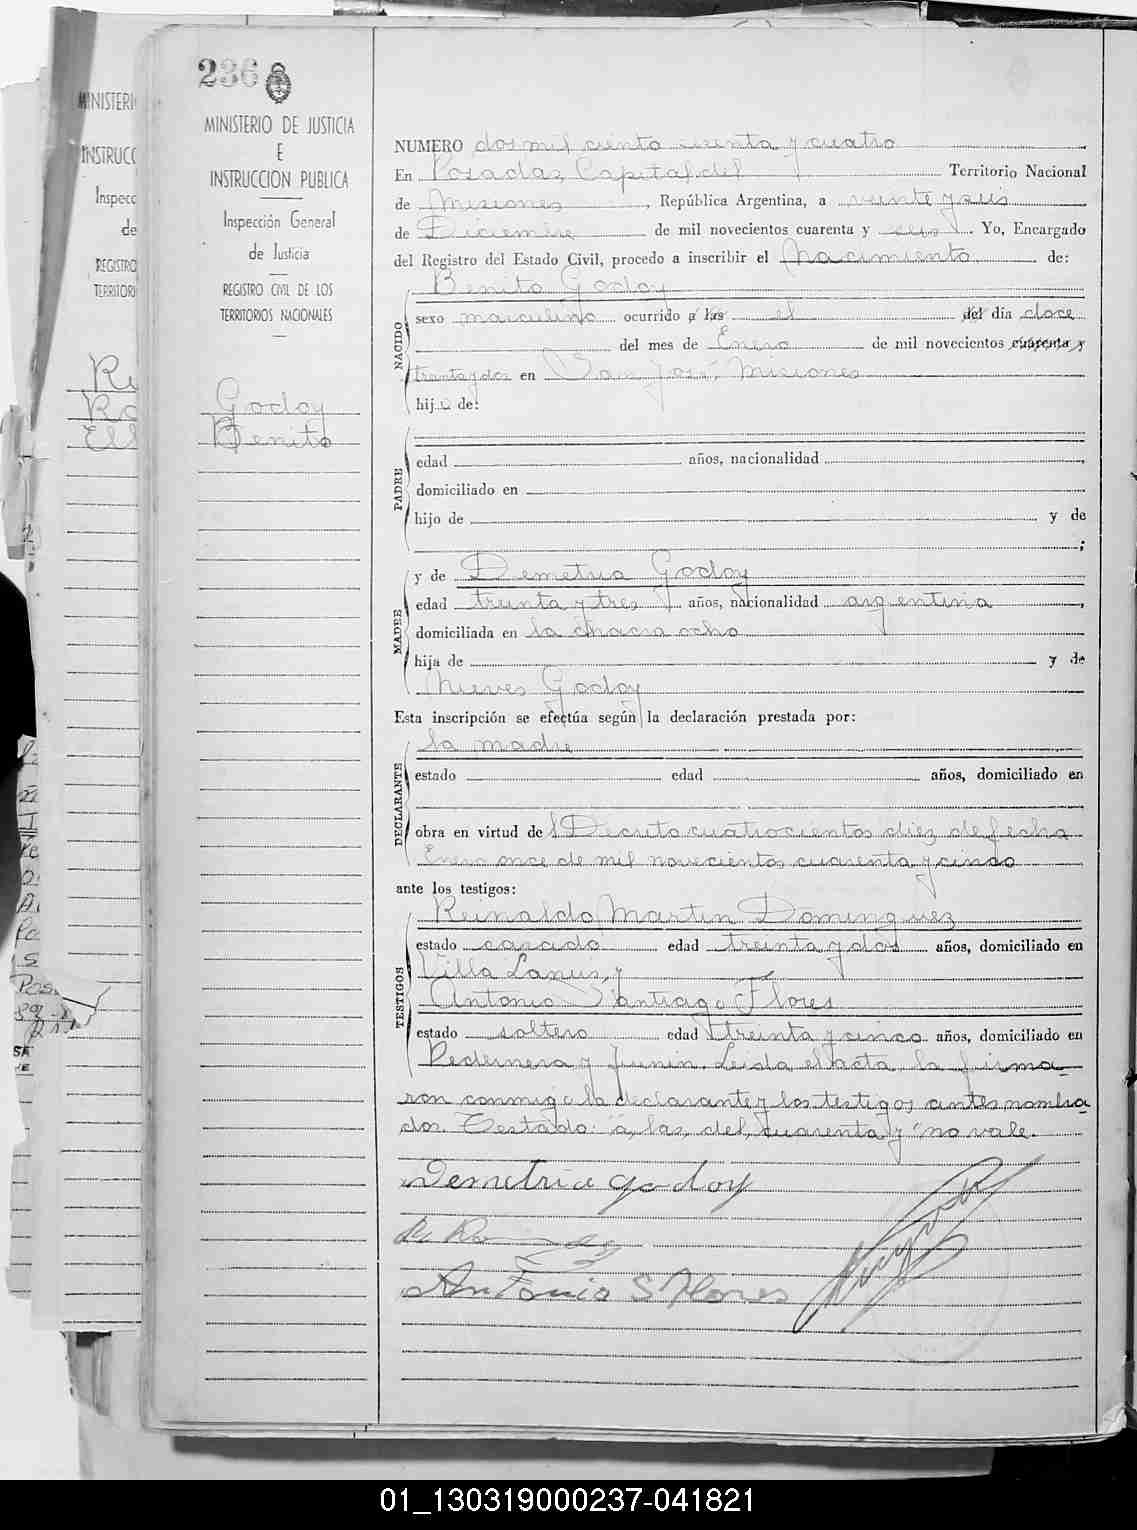 236
MINISTERIO DE JUSTICIA
E
INSTRUCCION PUBLICA
Inspección General
de Justicia
REGISTRO CIVIL DE LOS
TERRITORIOS NACIONALES
Godoy
Benito
NUMERO dos mil ciento y cuatro
En Posadas, Capital del Territorio Nacional
de Misiones, República Argentina, a veinte y seis
de Diciembre de mil novecientos cuarenta y seis. Yo, Encargado
del Registro del Estado Civil, procedo a inscribir el Nacimiento de:
NACIDO
Benito Godoy
sexo masculino ocurrido a las el del día doce
del mes de Enero de mil novecientos cuarenta y
treinta y dos en San José, Misiones
hijo de:
PADRE
edad años, nacionalidad
domiciliado en
hijo de y de
;
MADRE
y de Demetria Godoy
edad treinta y tres años, nacionalidad argentina
domiciliada en la chacra ocho
hija de y de
Nieves Godoy
Esta inscripción se efectúa según la declaración prestada por:
DECLARANTE
la madre
estado edad años, domiciliado en
obra en virtud del Decreto cuatrocientos diez de fecha
Enero once de mil novecientos cuarenta y cinco
ante los testigos:
TESTIGOS
Reinaldo Martin Dominguez
estado casado edad treinta y dos años, domiciliado en
Villa Lanus, y
Antonio Santiago Flores
estado soltero edad treinta y cinco años, domiciliado en
Pedernera y Junin. Leida el acta, la firma-
ron conmigo la declarante y los testigos antes nombra-
dos. Testado: "a, las, del, cuarenta y" no vale.
Demetria Godoy
Antonio S Flores
MINISTERI
INSTRUCC
Inspecc
de
REGISTRO
TERRITORI
01_130319000237-041821